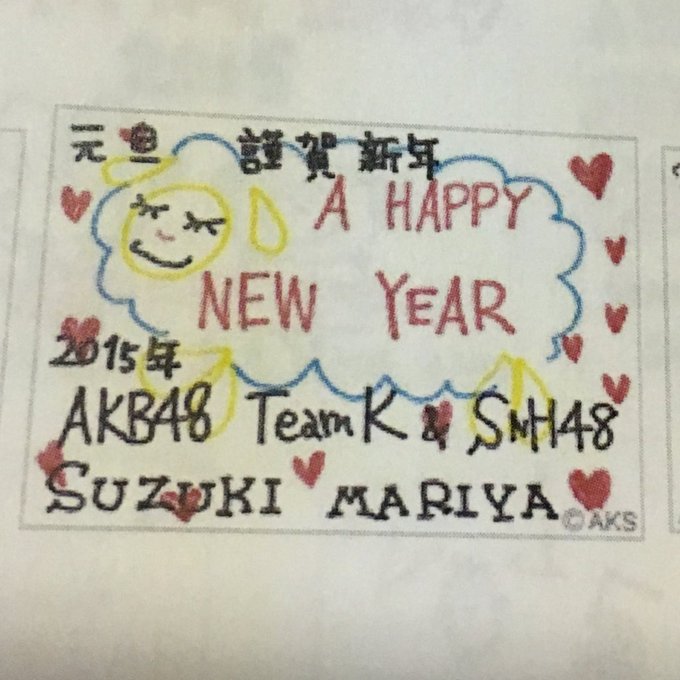 元旦 謹賀新年
A HAPPY
NEW YEAR
2015年
AKB48 Team K & SNH48
SUZUKI MARIYA
©AKS